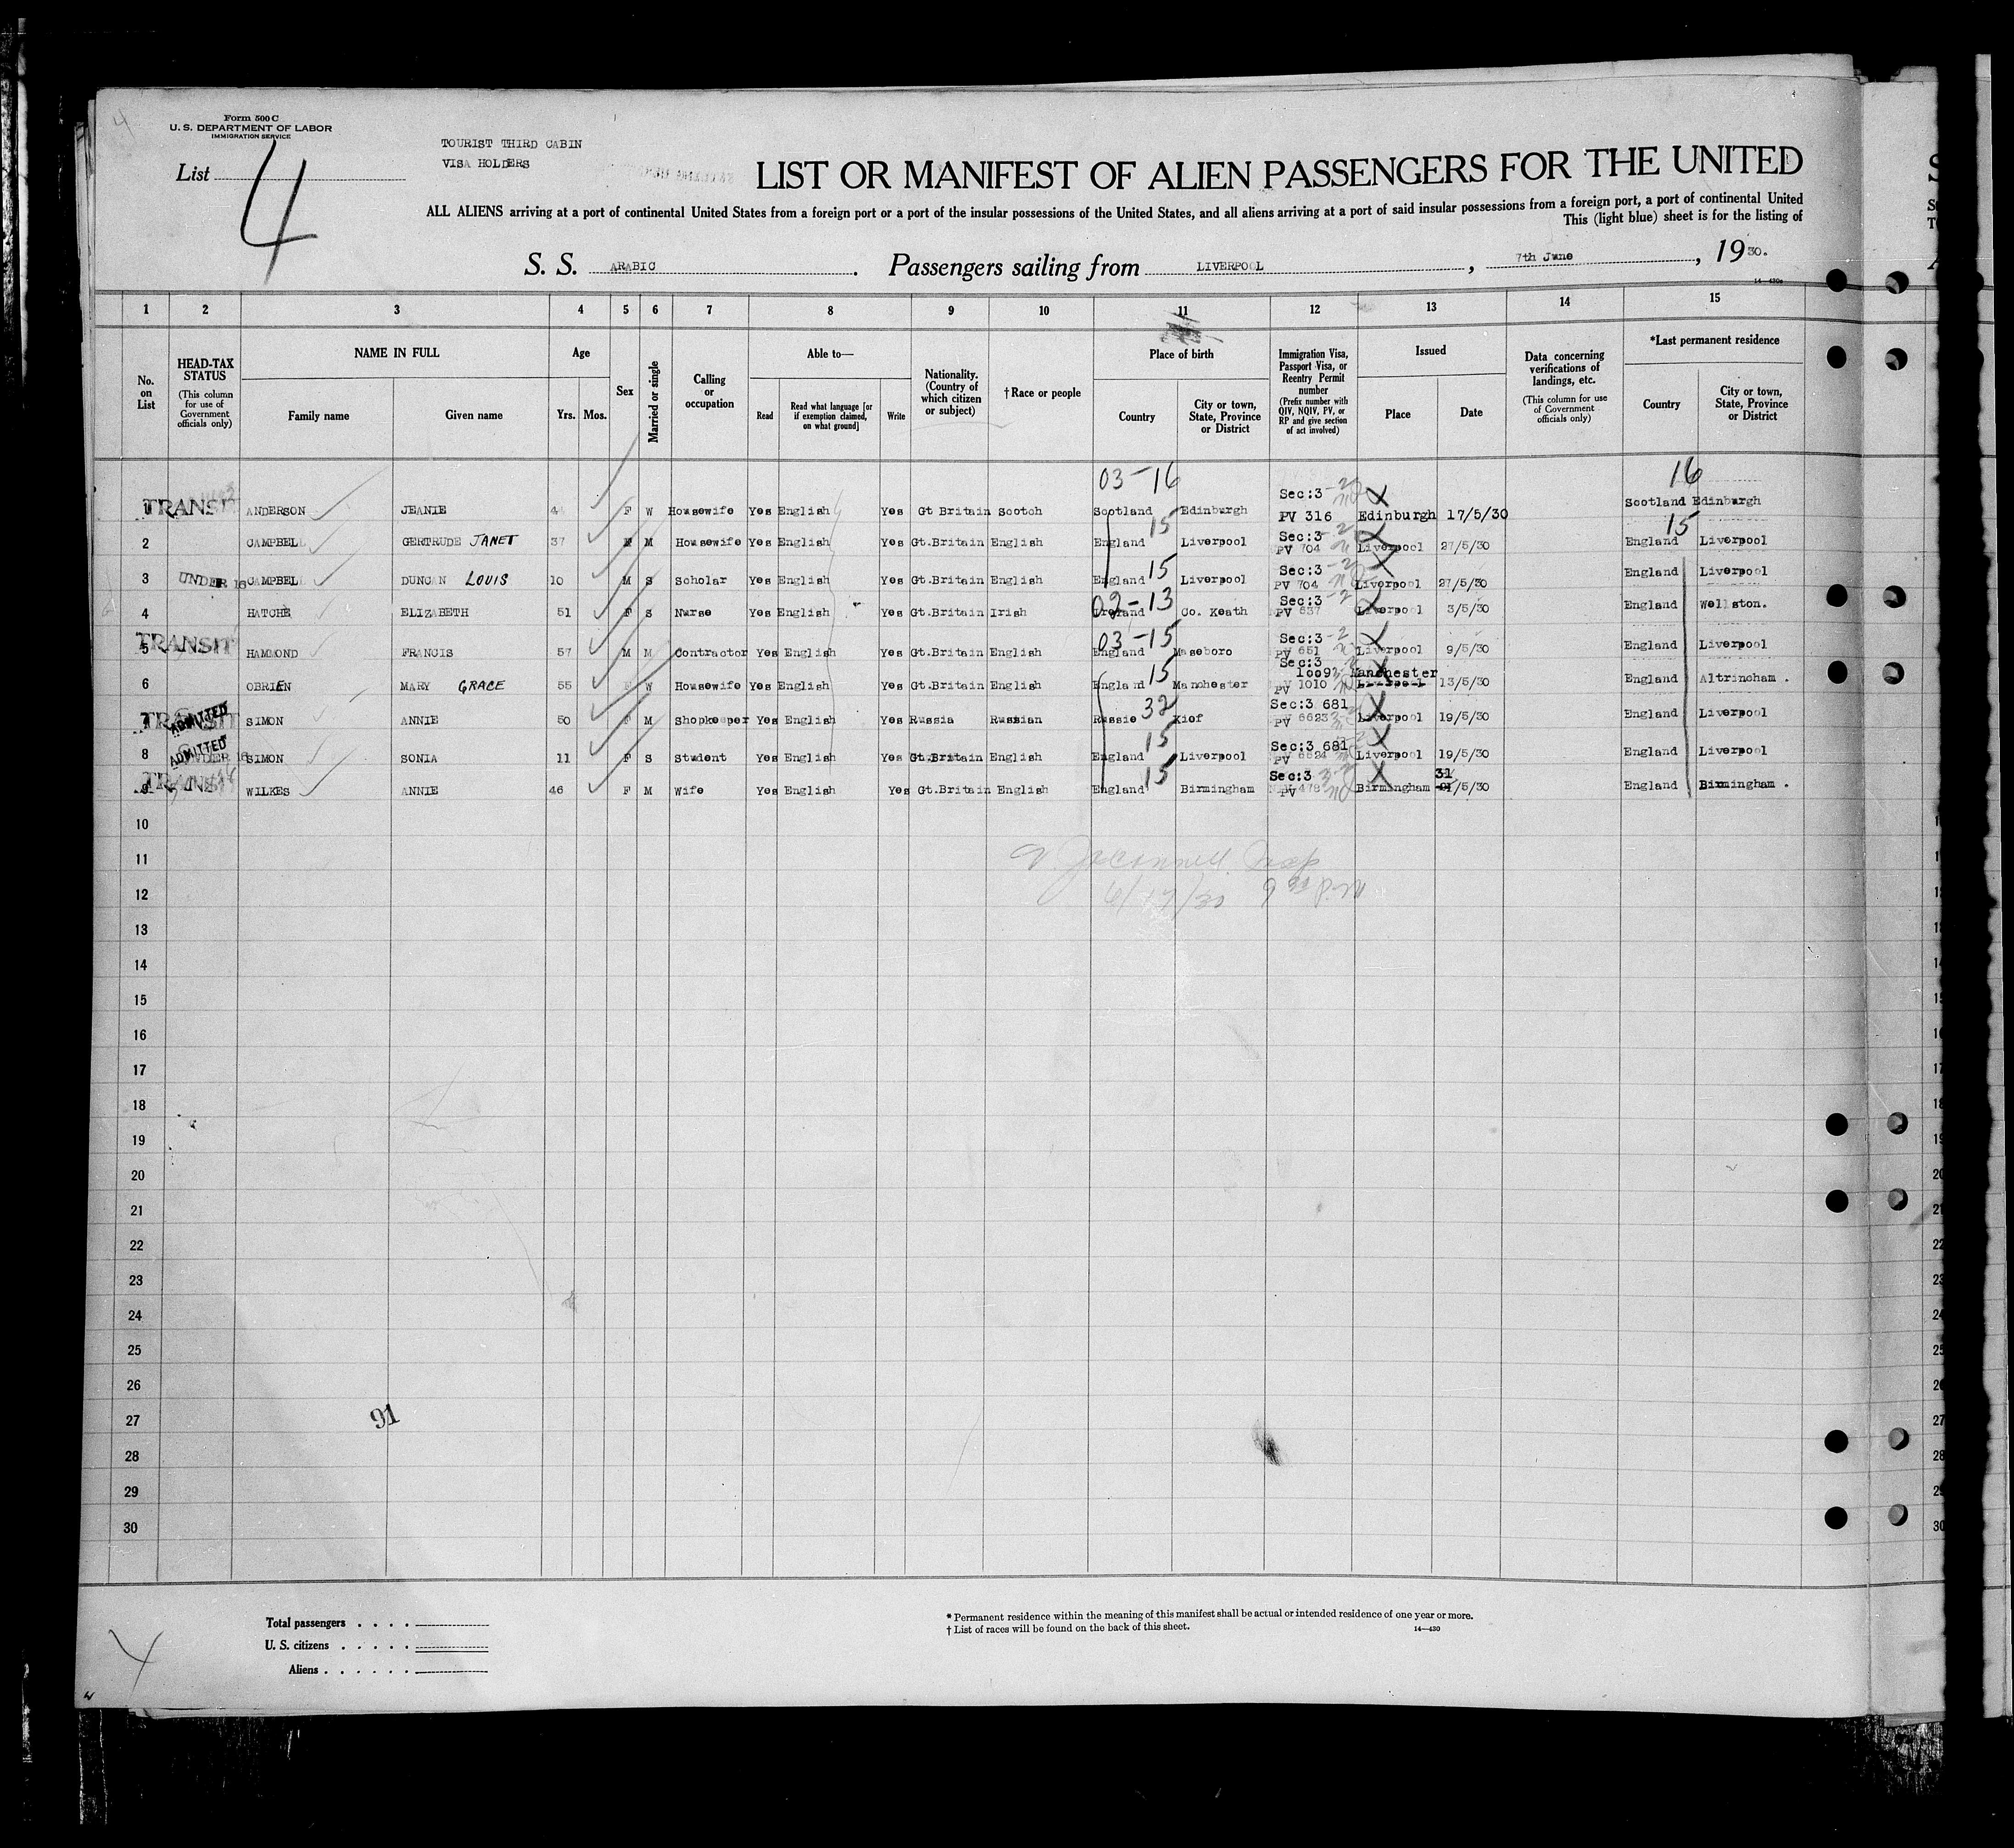 Form 500 C
U. S. DEPARTMENT OF LABOR
IMMIGRATION SERVICE
List 4
TOURIST THIRD CABIN
VISA HOLDERS
LIST OR MANIFEST OF ALIEN PASSENGERS FOR THE UNITED
ALL ALIENS arriving at a port of continental United States from a foreign port or a port of the insular possessions of the United States, and all aliens arriving at a port of said insular possessions from a foreign port, a port of continental United
This (light blue) sheet is for the listing of
S. S. ARABIC. Passengers sailing from LIVERPOOL, 7th June, 1930.
14—430a
1 2 3 4 5 6 7 8 9 10 11 12 13 14 15
No. on List
HEAD-TAX STATUS (This column for use of Government officials only)
NAME IN FULL
Family name
Given name
Age
Yrs. Mos.
Sex
Married or single
Calling or occupation
Able to—
Read
Read what language [or if exemption claimed, on what ground]
Write
Nationality. (Country of which citizen or subject)
† Race or people
Place of birth
Country
City or town, State, Province or District
Immigration Visa, Passport Visa, or Reentry Permit number (Prefix number with QIV, NQIV, PV, or RP and give section of act involved)
Issued
Place
Date
Data concerning verifications of landings, etc. (This column for use of Government officials only)
*Last permanent residence
Country
City or town, State, Province or District
03-16 16
1 TRANSIT ANDERSON JEANIE 44 F W Housewife Yes English Yes Gt Britain Scotch Scotland Edinburgh Sec:3-2 PV 316 Edinburgh 17/5/30 Scotland Edinburgh
15 15
2 CAMPBELL GERTRUDE JANET 37 F M Housewife Yes English Yes Gt.Britain English England Liverpool Sec:3-2 PV 704 Liverpool 27/5/30 England Liverpool
15
3 UNDER 16 CAMPBELL DUNCAN LOUIS 10 M S Scholar Yes English Yes Gt.Britain English England Liverpool Sec:3-2 PV 704 Liverpool 27/5/30 England Liverpool
02-13
4 HATCHE ELIZABETH 51 F S Nurse Yes English Yes Gt.Britain Irish Ireland Co. Keath Sec:3-2 PV 637 Liverpool 3/5/30 England Wellston.
03-15
5 TRANSIT HAMMOND FRANCIS 57 M M Contractor Yes English Yes Gt.Britain English England Maseboro Sec:3-2 PV 651 Liverpool 9/5/30 England Liverpool
15
6 OBRIEN MARY GRACE 55 F W Housewife Yes English Yes Gt.Britain English England Manchester Sec:3 1009 PV 1010 Manchester Liverpool 13/5/30 England Altrincham.
32
7 TRANSIT ADMITTED SIMON ANNIE 50 F M Shopkeeper Yes English Yes Russia Russian Russie Kiof Sec:3 681 PV 6623 Liverpool 19/5/30 England Liverpool
15
8 ADMITTED UNDER 16 SIMON SONIA 11 F S Student Yes English Yes Gt.Britain English England Liverpool Sec:3 681 PV 6624 Liverpool 19/5/30 England Liverpool
15
9 TRANSIT WILKES ANNIE 46 F M Wife Yes English Yes Gt.Britain English England Birmingham Sec:3 PV 478 Birmingham 31/5/30 England Birmingham.
10
11
12 6/17/30
13
14
15
16
17
18
19
20
21
22
23
24
25
26
27 91
28
29
30
Total passengers
U. S. citizens
Aliens
* Permanent residence within the meaning of this manifest shall be actual or intended residence of one year or more.
† List of races will be found on the back of this sheet.
14—430